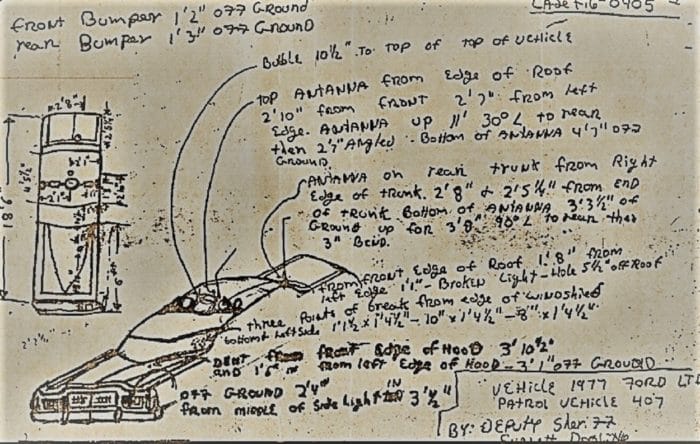 CASE F16-0405
front Bumper 1'2" off Ground
rear Bumper 1'3" off Ground
Buble 10½" To Top of Top of vehicle
Top ANTANNA from Edge of Roof
2'10" from FRONT 2'7" from left
Edge. ANTANNA up 11" 30° L to rear
then 2'7" Angled. Bottom of ANTANNA 4'7" off
Ground
ANTANNA on rear trunk from Right
Edge of trunk. 2'8" & 2'5¼" from END
of trunk Bottom of ANTANNA 3'3½" off
Ground up for 3'8" 90° L to rear then
3" Bend.
from front Edge of Roof 1'8" from
left Edge 1'1" - Broken Light - Hole 5½" off Roof
three points of break from edge of windshield
bottom & Left side 1'1½ x 1'4½" - 10" x 1'4½" - 8" x 1'4½"
DENT from front Edge of Hood 3'10½"
AND 1'5" from left Edge of Hood - 3'1" off Ground
off Ground 2'4"
from middle of Side Light IN 3'½"
VEHICLE 1977 FORD LTD
PATROL VEHICLE 407
BY: DEPUTY Sheriff
2'8"